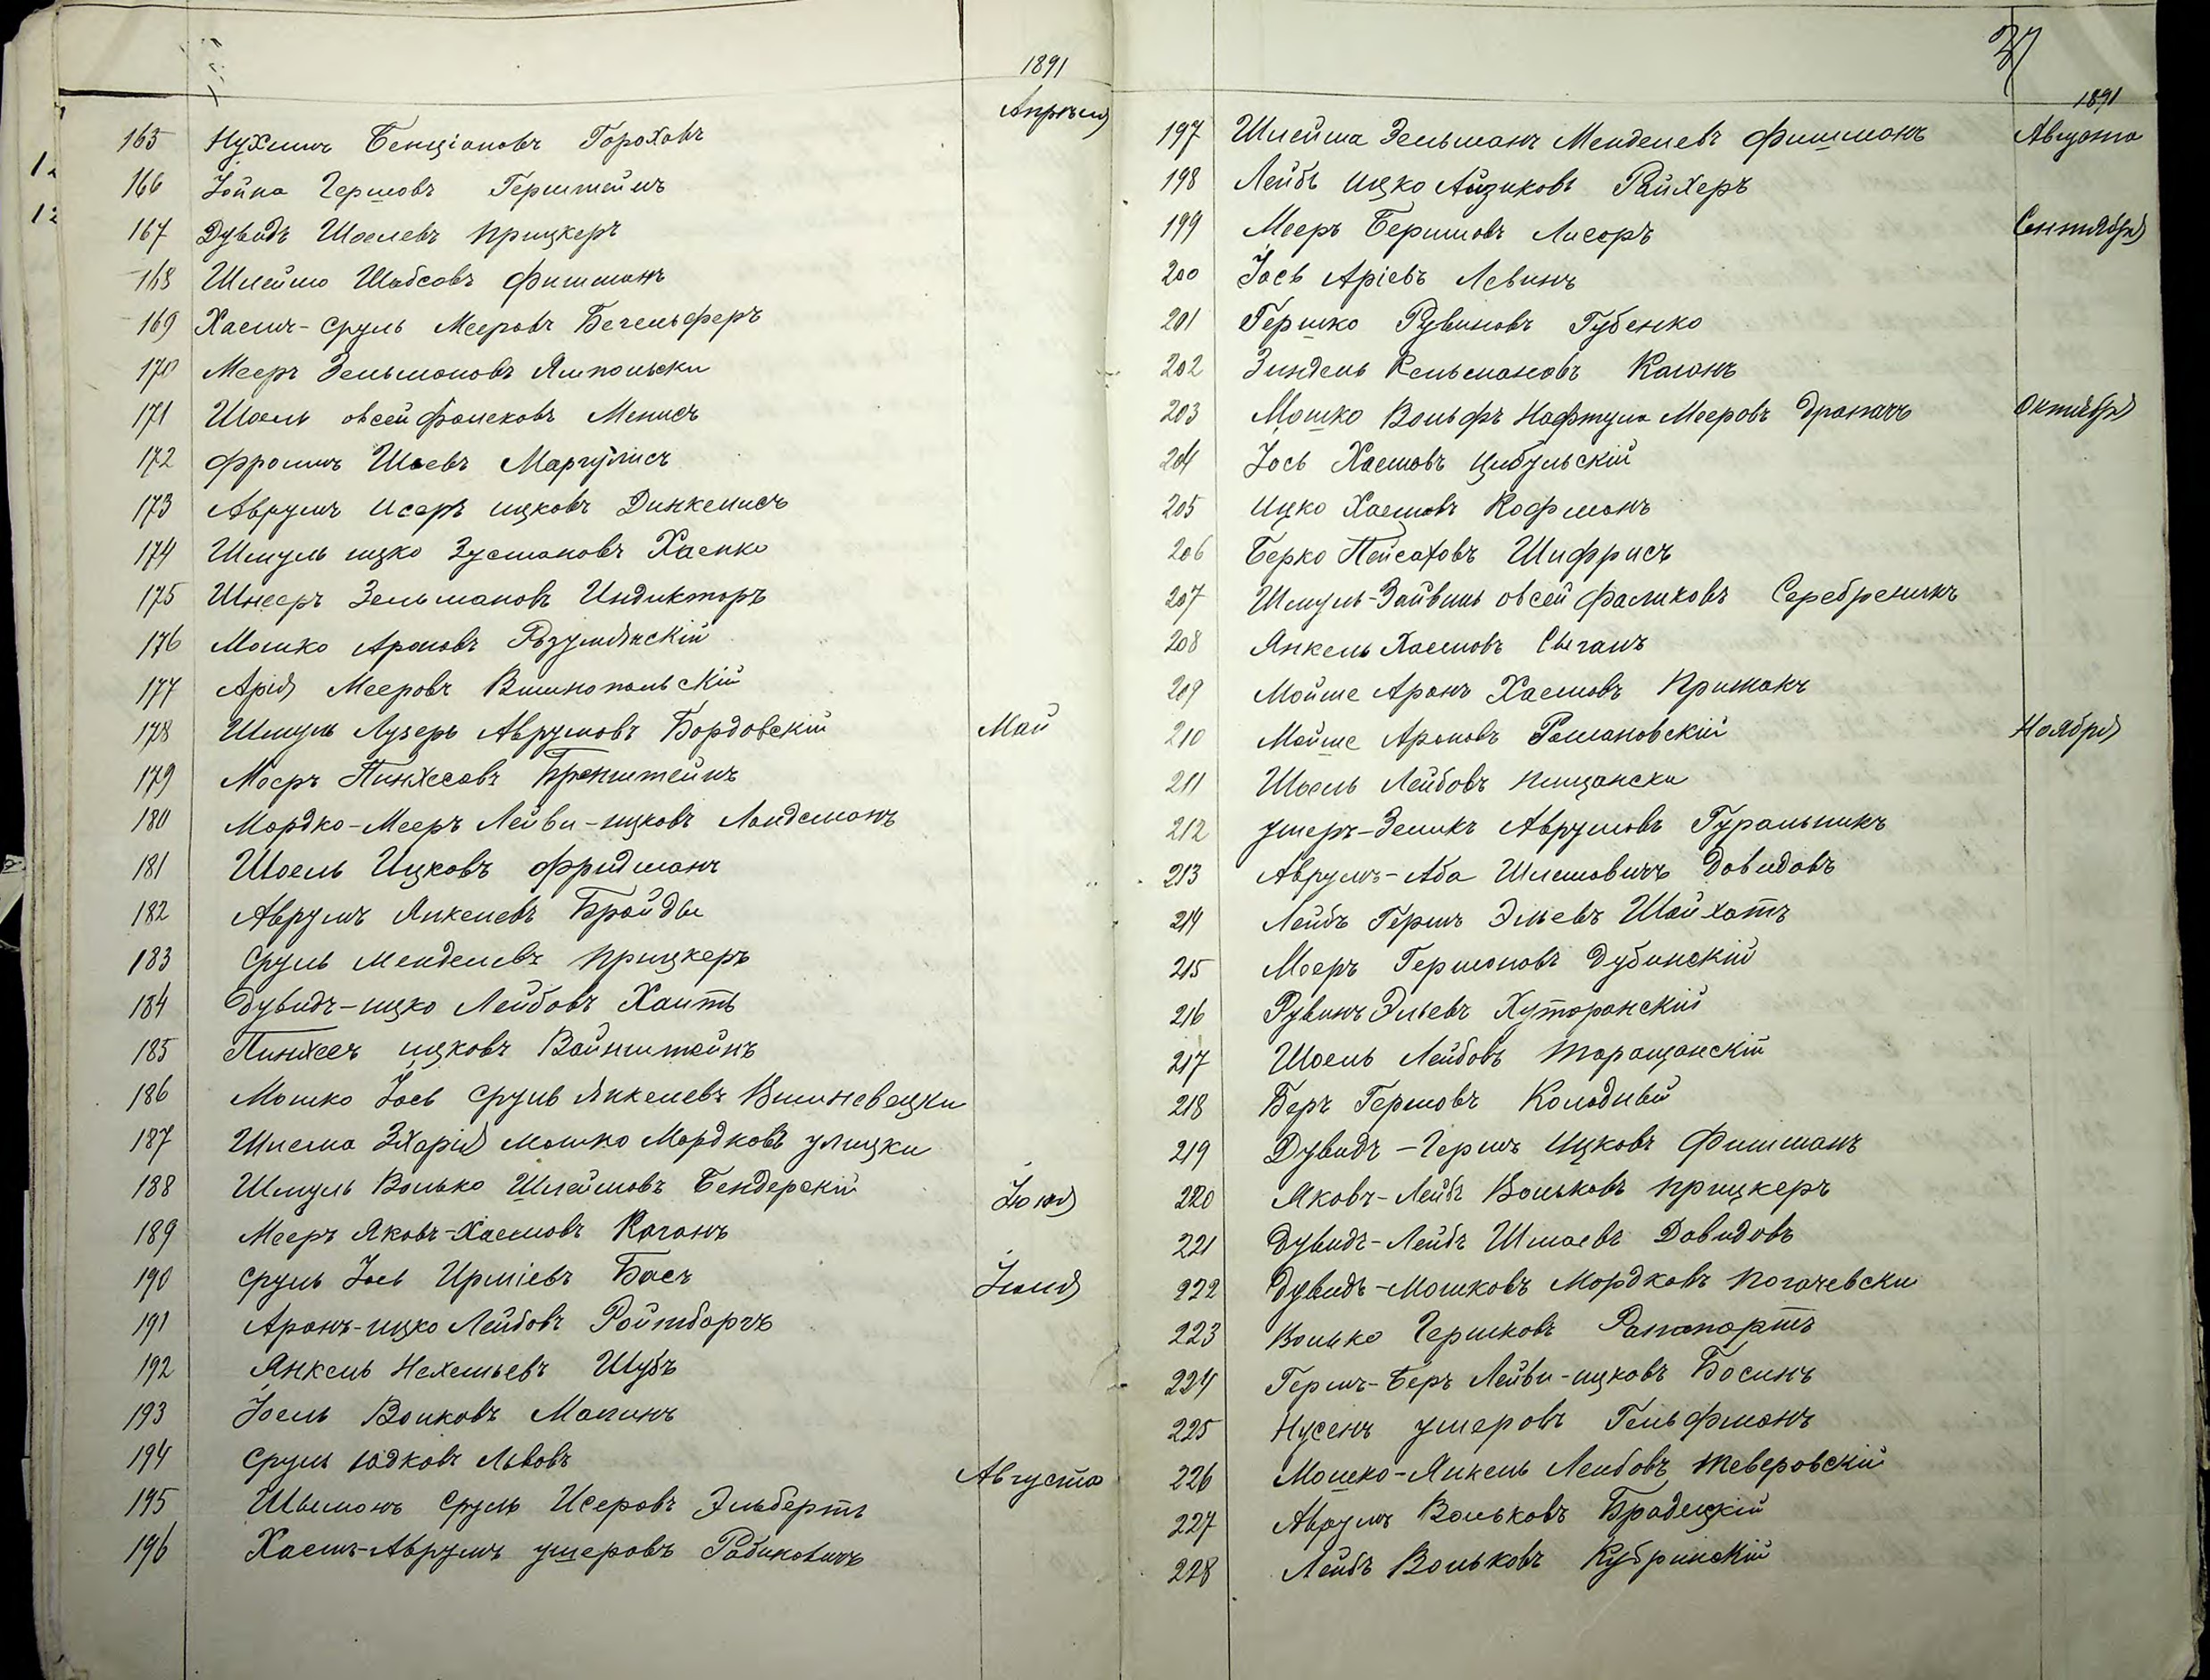 1891
Апрѣля
165 Нухимъ Бенціоновъ Гороховъ
166 Іойна Гершовъ Герштейнъ
167 Дувидъ Шоелевъ Прицкеръ
168 Шлеймо Шабсовъ Фишманъ
169 Хаимъ-Сруль Мееровъ Бегельферъ
170 Мееръ Зельмановъ Ямпольски
171 Шоель Овсей Фалековъ Менисъ
172 Фроимъ Шаевъ Маргулисъ
173 Аврумъ Исеръ Ицковъ Динкелисъ
174 Шмуль Ицко Зусмановъ Хаенко
175 Шнееръ Зельмановъ Индикторъ
176 Мошко Ароновъ
177 Арія Мееровъ Вишнопольскій
178 Шмуль Лузеръ Аврумовъ Бордовскій Май
179 Мееръ Пинхесовъ Бронштейнъ
180 Мордко-Мееръ Лейви-Ицковъ Ландсманъ
181 Шоель Ицковъ Фридманъ
182 Аврумъ Янкелевъ Бройды
183 Сруль Менделевъ Прицкеръ
184 Дувидъ-Ицко Лейбовъ Хаитъ
185 Пинхесъ Ицковъ Вайнштейнъ
186 Мошко Іось Сруль Янкелевъ Вишневецки
187 Шлема Зхарія Мошко Мордковъ Улицки
188 Шмуль Волько Шлеймовъ Бендерскій Іюня
189 Мееръ Яковъ-Хаимовъ Каганъ
190 Сруль Іось Ирміевъ Басъ Іюля
191 Аронъ-Ицко Лейбовъ Ройтборгъ
192 Янкель Нехемьевъ Шубъ
193 Іоель Волковъ Магинъ
194 Сруль Юдковъ Львовъ
Августа
195 Шльомонъ Сруль Исеровъ Эльбертъ
196 Хаимъ-Аврумъ Ушеровъ Рабиновичъ
37
1891
197 Шлейма Зельманъ Менделевъ Фишманъ Августа
198 Лейбъ Ицко Айзиковъ Райхеръ
199 Мееръ Бершовъ Лисоръ Сентября
200 Іось Аріевъ Левинъ
201 Гершко Рувиновъ Губенко
202 Зиндель Кельмановъ Каганъ
203 Мошко Вольфъ Нафтула Мееровъ Драпачъ Октября
204 Іось Хаимовъ Цибульскій
205 Ицко Хаимовъ Кофманъ
206 Берко Пейсаховъ Шифрисъ
207 Шмуль-Зайвиль Овсей Фаликовъ Серебреникъ
208 Янкель Хаимовъ Сыганъ
209 Мойше Аронъ Хаимовъ Примакъ
210 Мойше Ароновъ Романовскій Ноября
211 Шоель Лейбовъ Пищански
212 Ушеръ-Зеликъ Аврумовъ Гуральникъ
213 Аврумъ-Аба Шлемовичъ Давидовъ
214 Лейбъ Гершъ Эльевъ Шайхатъ
215 Мееръ Гершоновъ Дубинскій
216 Рувинъ Эльевъ Хуторанскій
217 Шоель Лейбовъ Таращанскій
218 Беръ Гершовъ Колодный
219 Дувидъ-Гершъ Ицковъ Фишманъ
220 Яковъ-Лейбъ Вольковъ Прицкеръ
221 Дувидъ-Лейбъ Шмаевъ Давидовъ
222 Дувидъ-Мошковъ Мордковъ Погачевски
223 Волько Гершковъ Рапапортъ
224 Гершъ-Беръ Лейви-Ицковъ Босинъ
225 Нусенъ Ушеровъ Гельфманъ
226 Мошко-Янкель Лейбовъ Теверовскій
227 Аврумъ Вольковъ Брадецкій
228 Лейбъ Вольковъ Кубринскій